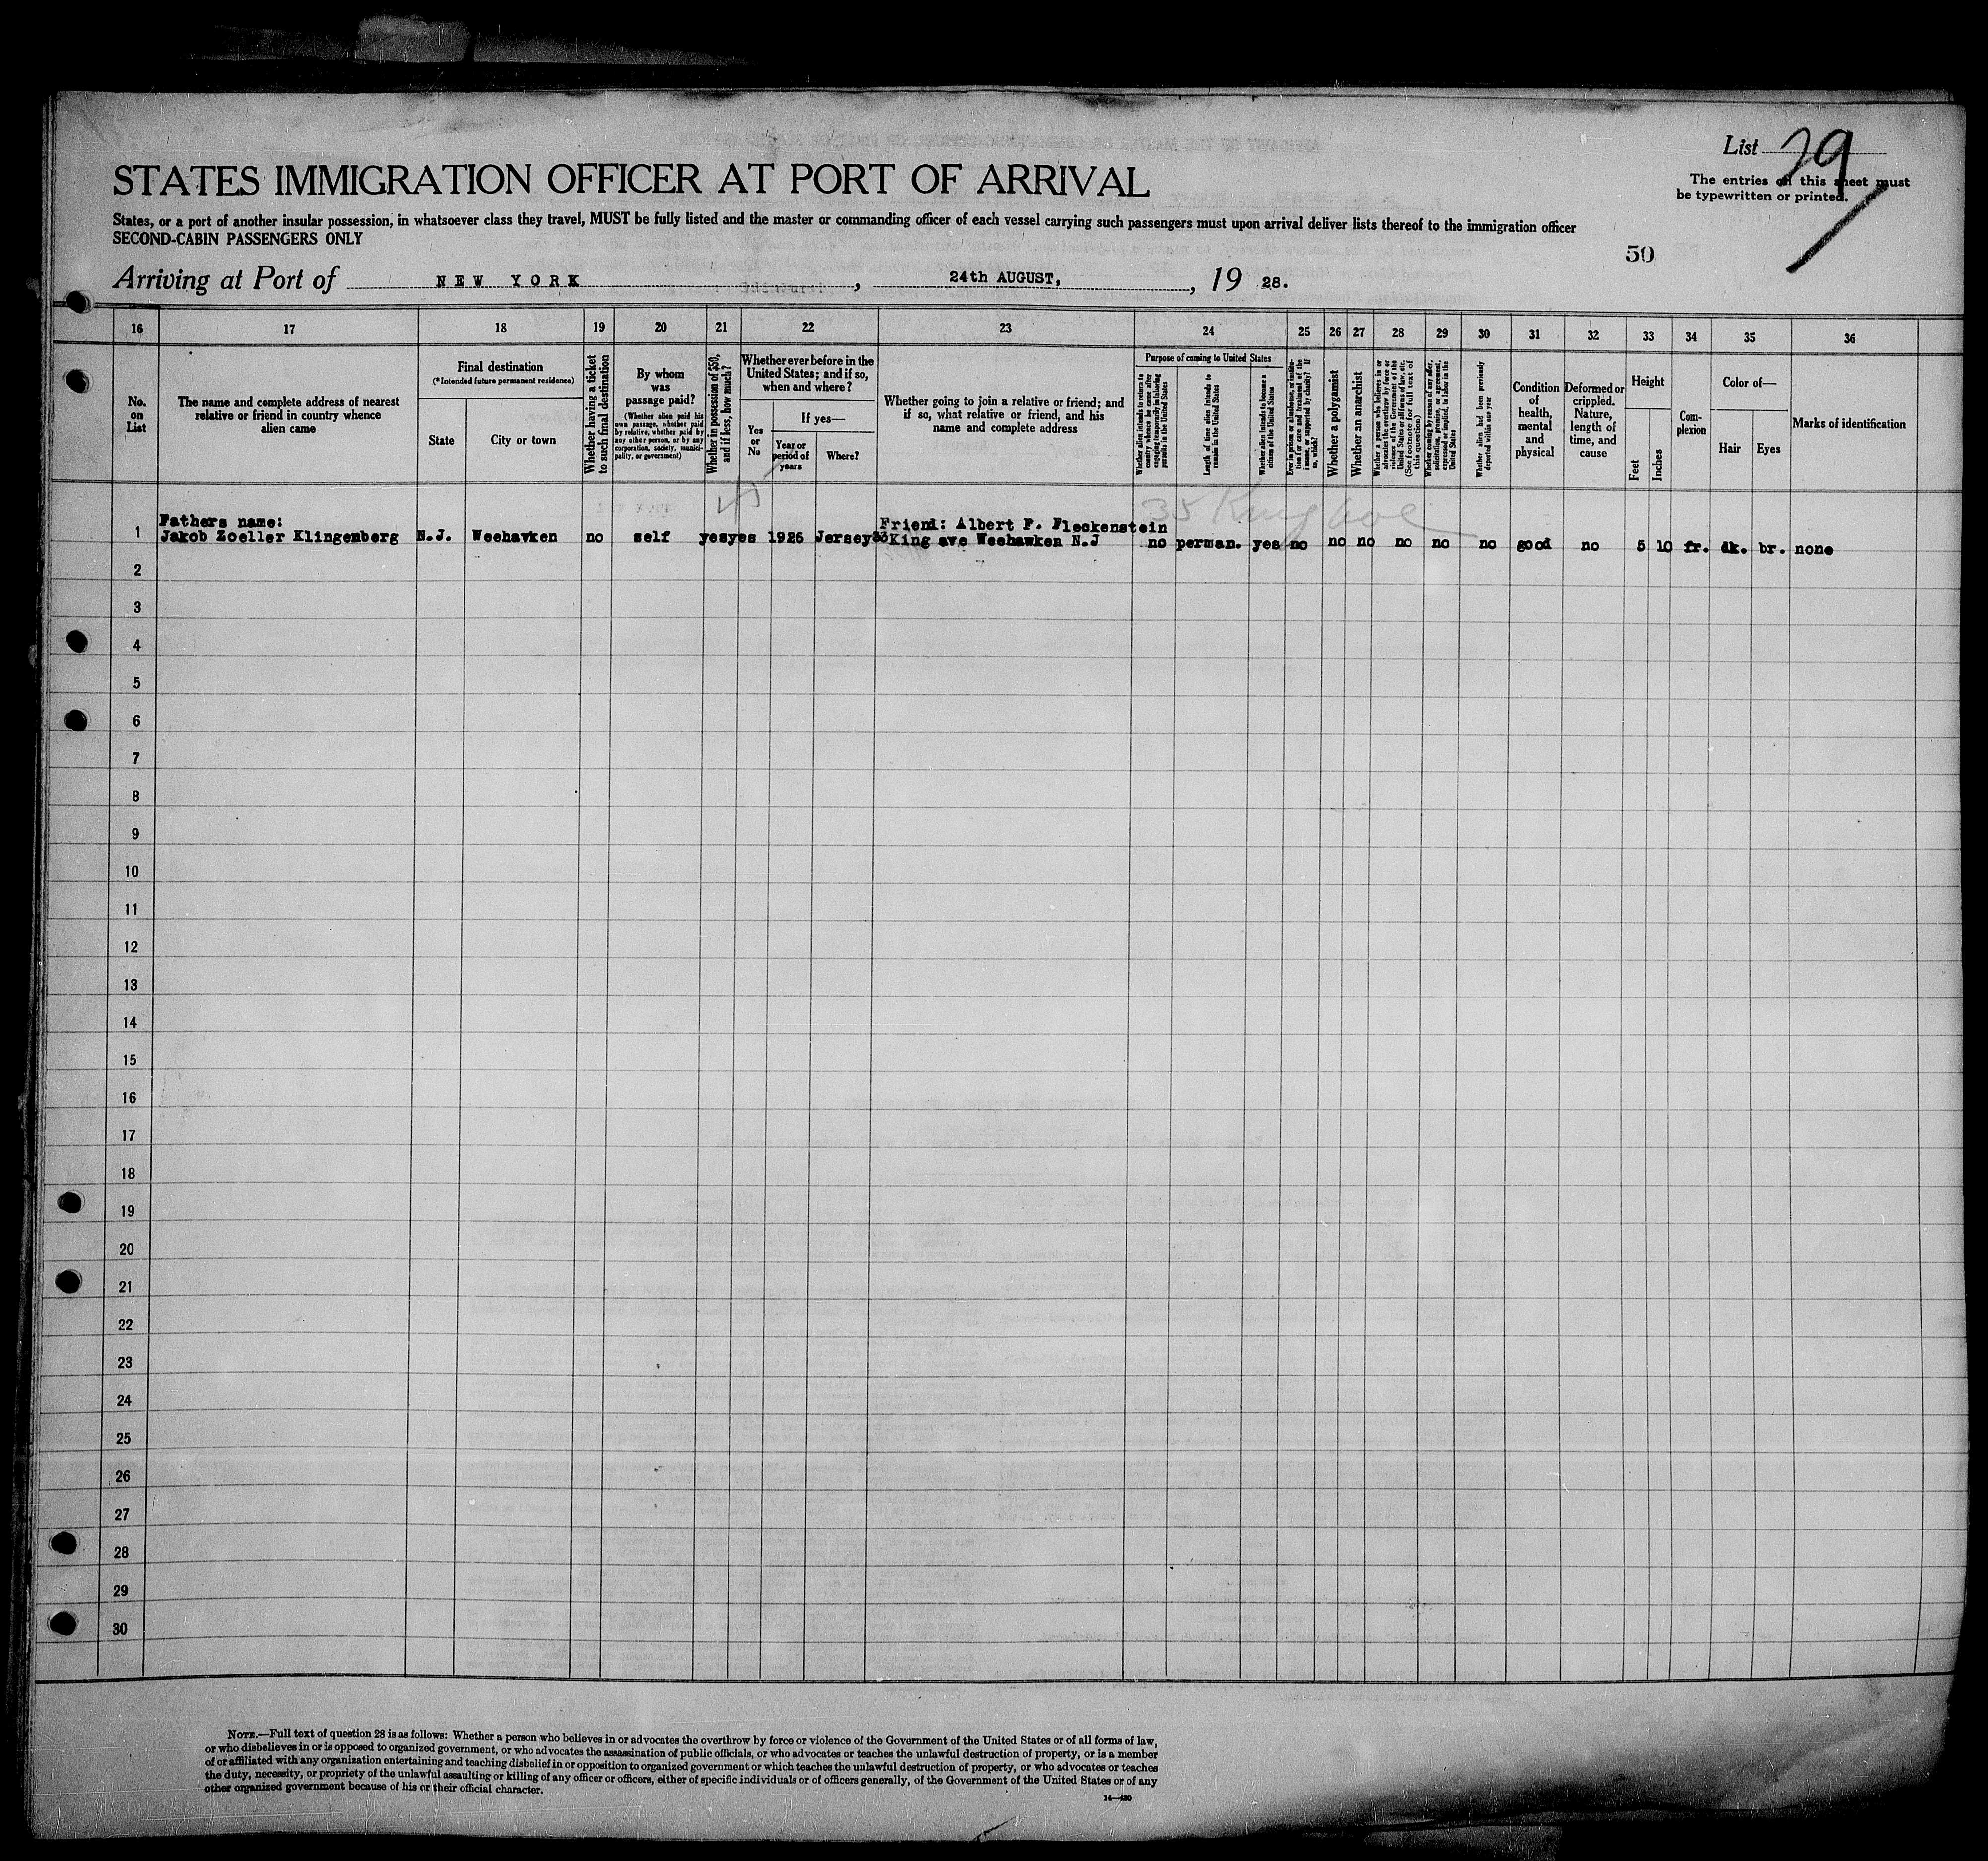 List 29
The entries on this sheet must
be typewritten or printed.
STATES IMMIGRATION OFFICER AT PORT OF ARRIVAL
States, or a port of another insular possession, in whatsoever class they travel, MUST be fully listed and the master or commanding officer of each vessel carrying such passengers must upon arrival deliver lists thereof to the immigration officer
SECOND-CABIN PASSENGERS ONLY
50
Arriving at Port of NEW YORK, 24th AUGUST, , 19 28.
16 17 18 19 20 21 22 23 24 25 26 27 28 29 30 31 32 33 34 35 36
No.
on
List
The name and complete address of nearest
relative or friend in country whence
alien came
Final destination
(*Intended future permanent residence)
State
City or town
Whether having a ticket
to such final destination
By whom
was
passage paid?
(Whether alien paid his
own passage, whether paid
by relative, whether paid by
any other person, or by any
corporation, society, munici-
pality, or government)
Whether in possession of $50,
and if less, how much?
Whether ever before in the
United States; and if so,
when and where?
Yes
or
No
If yes—
Year or
period of
years
Where?
Whether going to join a relative or friend; and
if so, what relative or friend, and his
name and complete address
Purpose of coming to United States
Whether alien intends to return to
country whence he came after
engaging temporarily in laboring
pursuits in the United States
Length of time alien intends to
remain in the United States
Whether alien intends to become a
citizen of the United States
Ever in prison or almshouse, or institu-
tion for care and treatment of the
insane, or supported by charity? If
so, which?
Whether a polygamist
Whether an anarchist
Whether a person who believes in or
advocates the overthrow by force or
violence of the Government of the
United States or all forms of law, etc.
(See footnote for full text of
this question)
Whether coming by reason of any offer,
solicitation, promise, or agreement,
expressed or implied, to labor in the
United States
Whether alien had been previously
deported within one year
Condition
of
health,
mental
and
physical
Deformed or
crippled.
Nature,
length of
time, and
cause
Height
Feet
Inches
Com-
plexion
Color of—
Hair
Eyes
Marks of identification
35 King ave
Fathers name:
Friend: Albert F. Fleckenstein
1 Jakob Zoeller Klingenberg N.J. Weehavken no self yes yes 1926 Jersey 33 King ave Weehawken N.J no perman. yes no no no no no no good no 5 10 fr. dk. br. none
2
3
4
5
6
7
8
9
10
11
12
13
14
15
16
17
18
19
20
21
22
23
24
25
26
27
28
29
30
NOTE.—Full text of question 28 is as follows: Whether a person who believes in or advocates the overthrow by force or violence of the Government of the United States or of all forms of law,
or who disbelieves in or is opposed to organized government, or who advocates the assassination of public officials, or who advocates or teaches the unlawful destruction of property, or is a member
of or affiliated with any organization entertaining and teaching disbelief in or opposition to organized government or which teaches the unlawful destruction of property, or who advocates or teaches
the duty, necessity, or propriety of the unlawful assaulting or killing of any officer or officers, either of specific individuals or of officers generally, of the Government of the United States or of any
other organized government because of his or their official character.
14—430